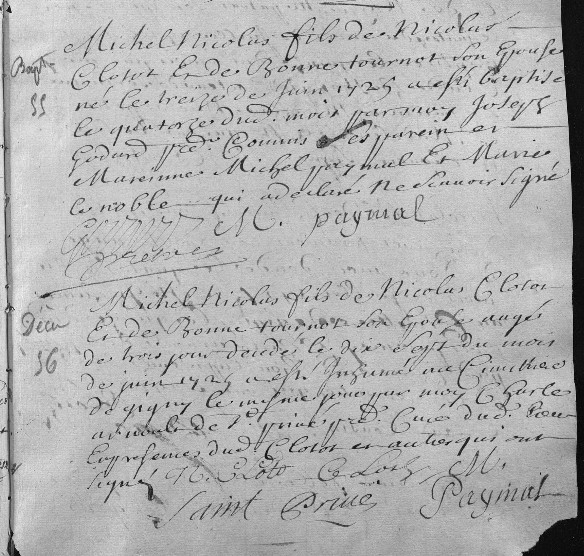 Michel Nicolas fils de Nicolas
Bapt
Clotot Et de Bonne tournot son Epouse
55
né le treize de Juin 1725 a esté baptisé
le quatorze dud. mois par moy Joseph
Godard Commis les parein et
Mareinne Michel paymal Et Marie
le noble qui a declaré Ne Scavoir Signé
M. paymal
Michel Nicolas fils de Nicolas Clotot
Et de Bonne tournot son Epouse augé
56
de trois jour decedé le du mois
de juin 1725 a esté Inhumé au Cimetiere
de gigny le même jour par moy Charle
arnoult de St. privé Curé dud. lieu
En presence dud. Clotot et autre qui ont
signé
M.
Saint Privé Paymal